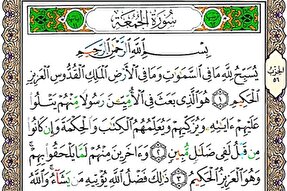 سُورَةُ الجُمُعَةِ
بِسْمِ ٱللَّهِ ٱلرَّحْمَٰنِ ٱلرَّحِيمِ
يُسَبِّحُ لِلَّهِ مَا فِى ٱلسَّمَٰوَٰتِ وَمَا فِى ٱلْأَرْضِ ٱلْمَلِكِ ٱلْقُدُّوسِ ٱلْعَزِيزِ
ٱلْحَكِيمِ ١ هُوَ ٱلَّذِى بَعَثَ فِى ٱلْأُمِّيِّـۧنَ رَسُولًا مِّنْهُمْ يَتْلُوا۟
عَلَيْهِمْ ءَايَٰتِهِۦ وَيُزَكِّيهِمْ وَيُعَلِّمُهُمُ ٱلْكِتَٰبَ وَٱلْحِكْمَةَ وَإِن كَانُوا۟
مِن قَبْلُ لَفِى ضَلَٰلٍ مُّبِينٍ ٢ وَءَاخَرِينَ مِنْهُمْ لَمَّا يَلْحَقُوا۟ بِهِمْ
وَهُوَ ٱلْعَزِيزُ ٱلْحَكِيمُ ٣ ذَٰلِكَ فَضْلُ ٱللَّهِ يُؤْتِيهِ مَن يَشَآءُ وَٱللَّهُ
الحزب
٥٦